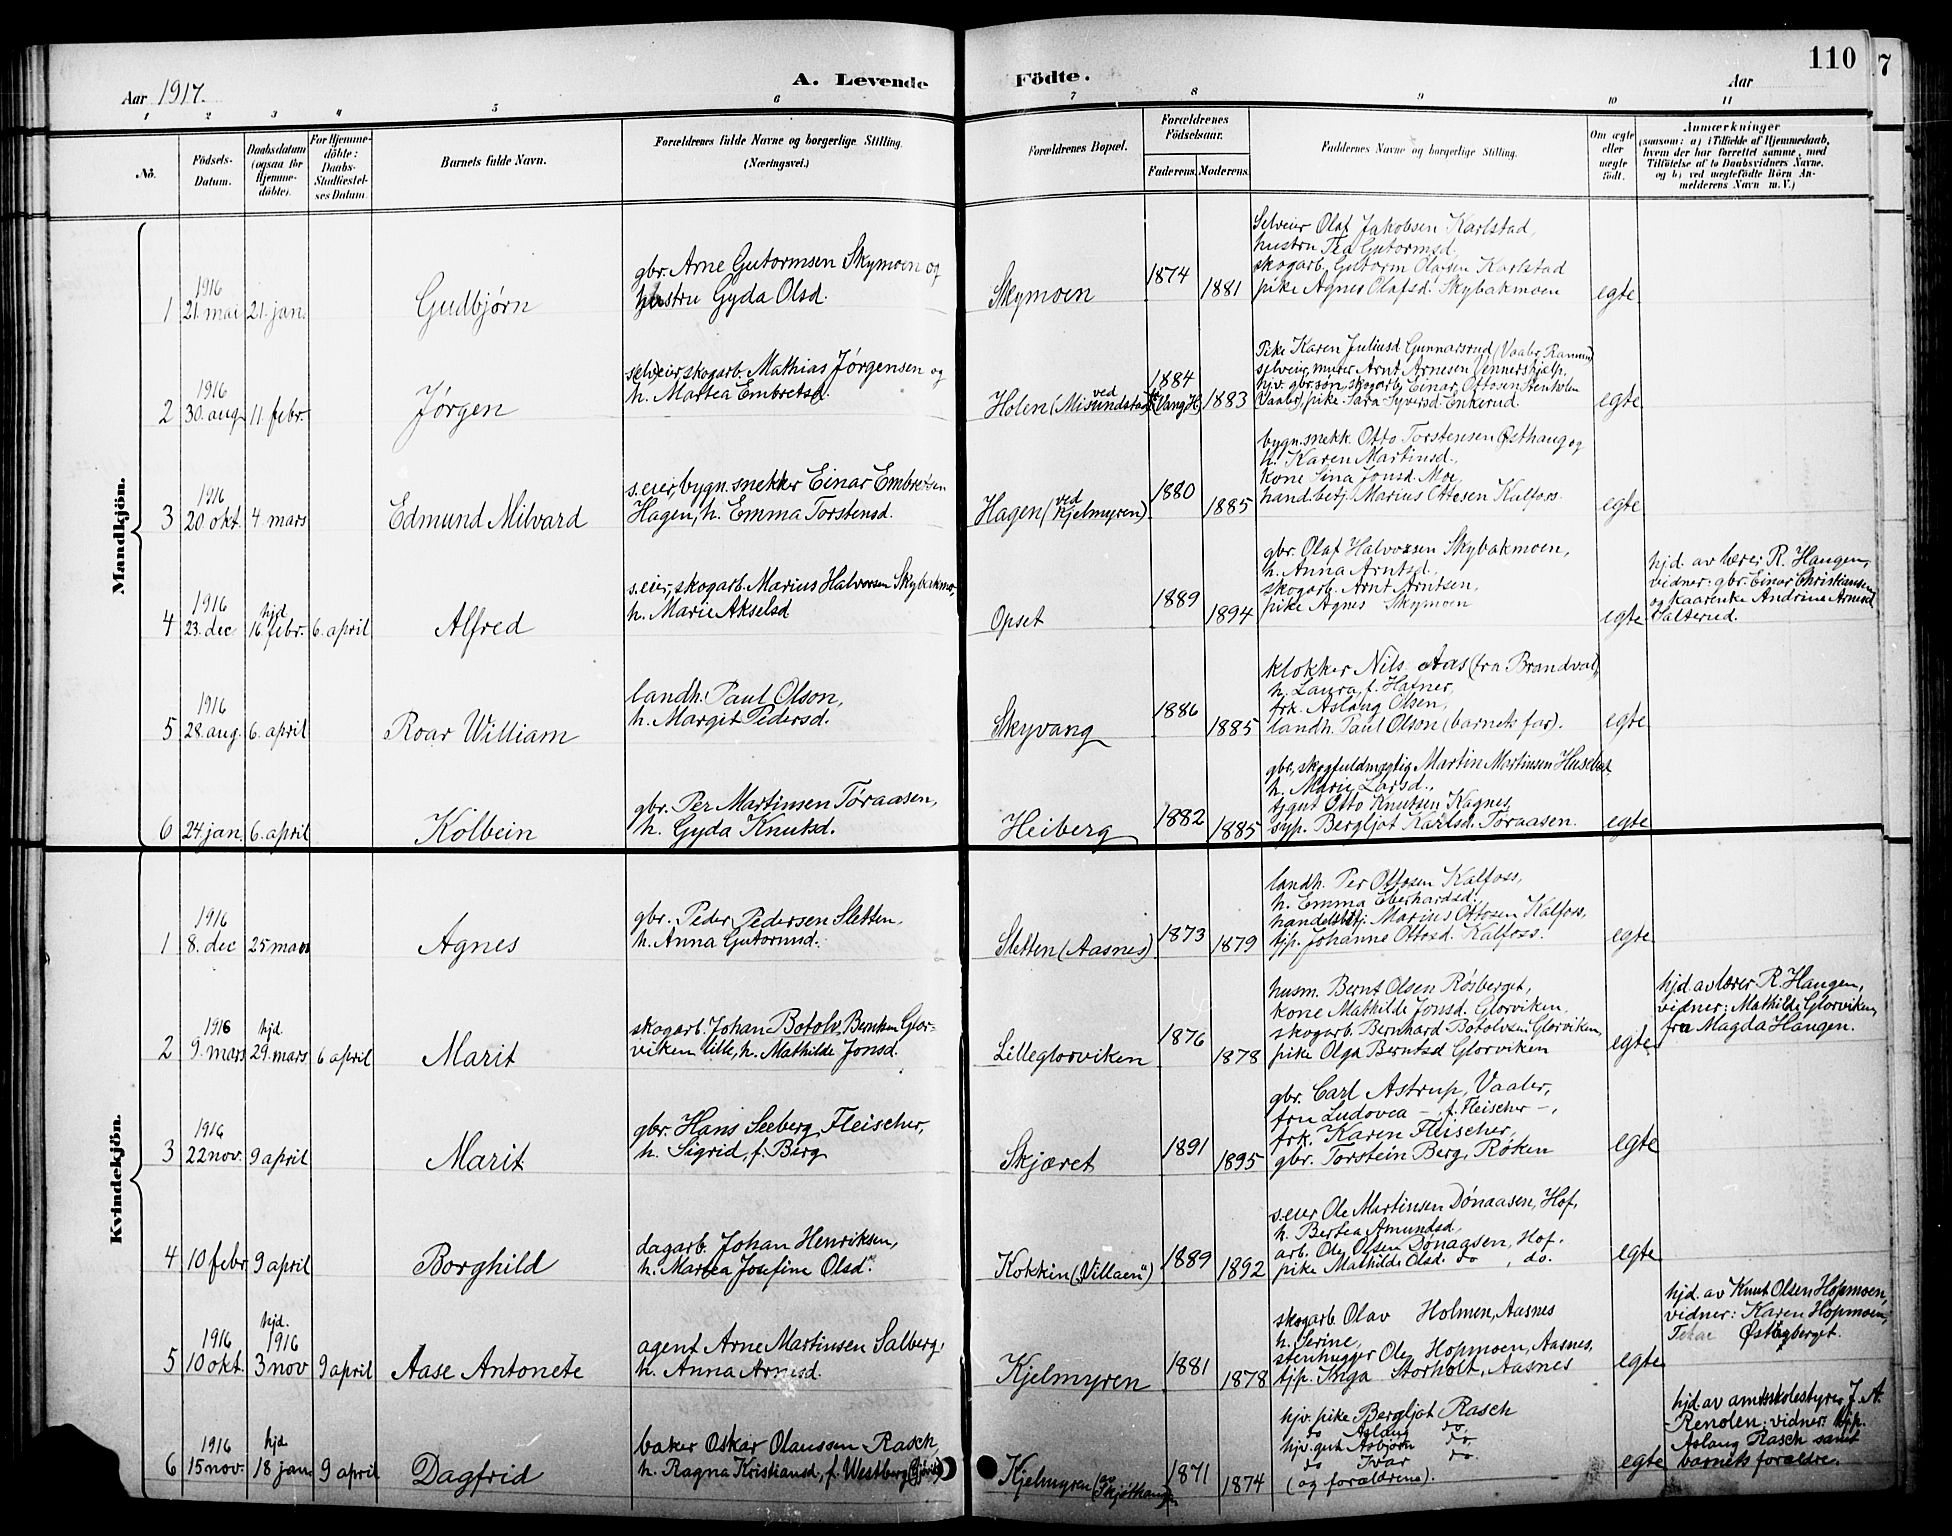 110
7
A. Levende Födte.
Aar 1917.
Aar
1 2 3 4 5 6 7 8 9 10 11
No.
Födsels-Datum.
Daabsdatum (ogsaa for Hjemme-döbte).
For Hjemme-döbte: Daabs-Stadfæstel-ses Datum.
Barnets fulde Navn.
Forældrenes fulde Navne og borgerlige Stilling. (Næringsvei.)
Forældrenes Bopæl.
Forældrenes Födselsaar.
Faderens. Moderens.
Faddernes Navne og borgerlige Stilling.
Om ægte eller uægte födt.
Anmærkninger
(saasom: a) i Tilfælde af Hjemmedaab,
hvem der har forrettet samme, med
Tilföielse af to Daabsvidners Navne,
og b) ved uægtefödte Börn An-
melderens Navn m. V.)
Mandkjön.
1
1916
21. mai
21. jan.
Gudbjørn
gbr. Arne Gutormsen Skymoen og
hustru Gyda Olsd.
Skymoen
1874
1881
Selveier Olaf Jakobsen Karlstad,
hustru Tea Gutormsd.
skogarb. Gutorm Olavsen Karlstad
pike Agnes Olafsd. Skybakmoen
egte
2
1916
30. aug
11. febr.
Jørgen
selveier skogarb. Mathias Jørgensen og
h. Martea Embretsd.
Holen (ved Misundstad)
1884
(Vang H)
1883
Pike Karen Juliusd Gunnarsrud (Vaaler
selveier, murer Arnt Arnesen Jennershjalp.
hjv. gbr.søn, skogarb. Einar Ottosen Stenholen
(Vaaler), pike Sara Syversd. Enkerud.
egte
3
1916
20 okt.
4. mars
Edmund Milvard
s.eier, bygn. snekker Einar Embretsen
Hagen, h. Emma Torstensd.
Hagen (ved Kjelmyren)
1880
1885
bygn. snekk. Otto Torstensen Østhaug og
h. Karen Martinsd.,
kone Sina Jonsd. Moe,
hand.betj. Marius Ottosen Kalfoss.
egte
4
1916
23. dec
hjd
16 febr.
6. april
Alfred
s.eier, skogarb. Marius Halvorsen Skybakmo,
h. Marie Akselsd
Opset
1889
1894
gbr. Olaf Halvorsen Skybakmoen,
h. Anna Arntsd.,
skogarb. Arnt Arntsen,
pike Agnes Skymoen
egte
hjd. av lærer R. Haugen,
vidner: gbr. Einar Christiansen
og kaarenke Andrine Arnesd
Salterud.
5
1916
28. aug.
6. april
Roar William
landh. Paul Olson,
h. Margit Pedersd.
Skyvang
1886
1885
klokker Nils Aas (fra Brandval),
h. Laura, f. Hafner,
frk. Aslaug Olsen,
landh. Paul Olson (barnets far).
egte
6
24. jan.
6. april
Kolbein
gbr. Per Martinsen Tøraasen,
h. Gyda Knutsd.
Heiberg
1882
1885
gbr., skogfuldmægtig Martin Martinsen Huseby
h. Marie Larsd.,
tj.gut Otto Knutsen Kagnes
syp. Bergljot Karlsd. Tøraasen.
egte
Kvindekjön.
1
1916
8. dec
25 mars
Agnes
gbr. Peder Pedersen Sletten,
h. Anna Gutormsd.
Sletten (Aasnes)
1873
1879
landh. Per Ottosen Kalfoss,
h. Emma Eberhardsd.,
handelsbetj. Marius Ottosen Kalfoss,
tjp. Johanne Ottosd. Kalfoss.
egte
2
1916
9. mars
hjd
29. mars
6 april
Marit
skogarb. Johan Botolv. Berntsen Glor-
viken lille, h. Mathilde Jonsd.
Lilleglorviken
1876
1878
husm. Bernt Olsen Rösberget,
kone Mathilde Jonsd. Glorviken,
skogarb. Bernhard Botolvsen Glorviken,
pike Olga Berntsd Glorviken
egte
hjd. av lærer R. Haugen,
vidner: Mathilde Glorviken
fru Magda Haugen.
3
1916
22 nov.
9 april
Marit
gbr. Hans Seeberg Fleischer,
h. Sigrid, f. Berg
Skjæret
1891
1895
gbr. Carl Astrup, Vaaler,
fru Ludovca — , f. Fleischer —,
frk. Karen Fleischer,
gbr. Torstein Berg, Røken
egte
4
10 febr
9 april
Borghild
dagarb. Johan Henriksen,
h. Martea Josefine Olsd.
Kokkin ("Villaen")
1889
1892
s.eier Ole Martinsen Dónaasen, Hof,
h. Bertea Amundsd,
arb. Ole Olsen Dónaasen, Hof.
pike Mathilde Olsd. do , do.
egte
5
1916
10 okt.
hjd.
1916
3 nov
9 april
Aase Antonete
agent Arne Martinsen Salberg,
h. Anna Arnesd.
Kjelmyren
1881
1878
skogarb Olav Holmen, Aasnes
h. Serine,
stenhugger Ole Hopmoen, Aasnes,
tjp. Inga Storholt, Aasnes
egte
hjd. av Knut Olsen Hopmoen,
vidner: Karen Hopmoen,
Østagberget.
6
1916
15 nov.
hjd
18 jan
9 april
Dagfrid
baker Oskar Olaussen Rasch,
h. Ragna Kristiansd, f. Westberg (Gjøvik)
Kjelmyren (Skjøthaugen
1871
1874
hjv. pike Bergljot Rasch
do Aslaug do.
hjv. gut Asbjørn do.
do Ivar do
(og forældrene).
egte
hjd. av amtsskolestyrer J. A.
Renolen; vidner: tjp.
Aslaug Rasch samt
barnets forældre.